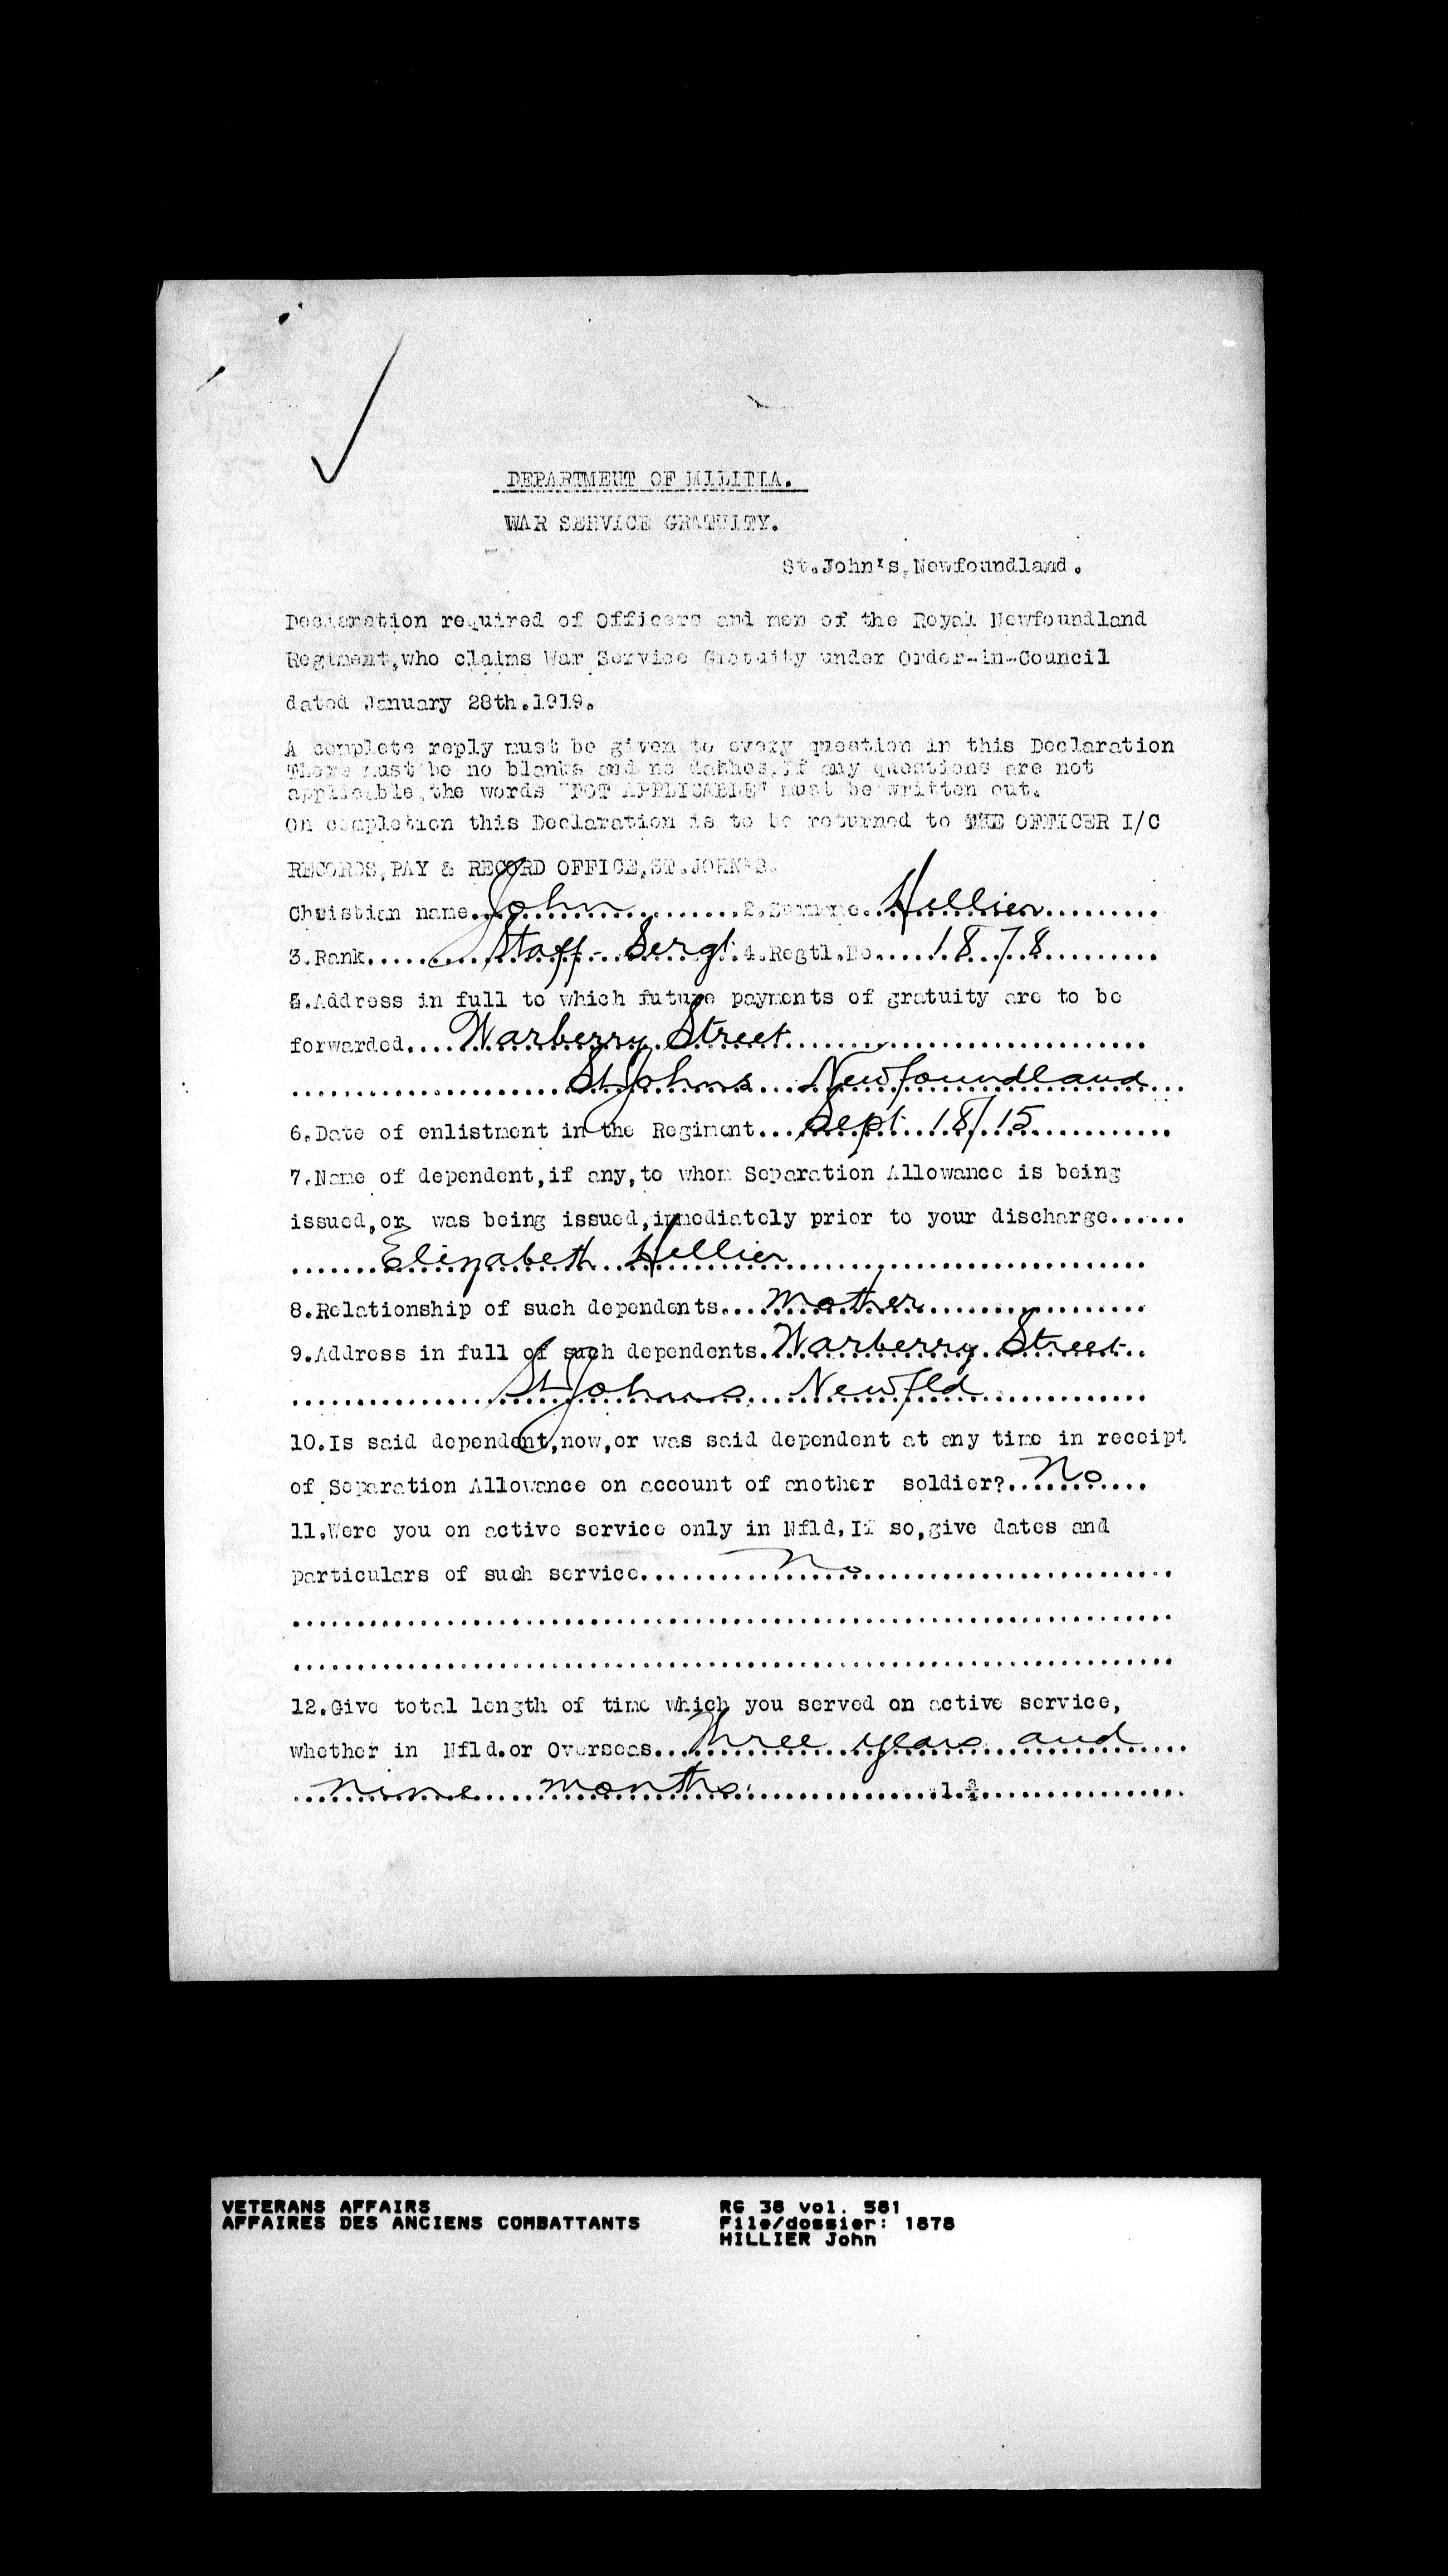 DEPARTMENT OF MILITIA.
WAR SERVICE GRATUITY.
St.John's,Newfoundland.
Declaration required of Officers and men of the Royal Newfoundland
Regiment,who claims War Service Gratuity under Order-in-Council
dated January 28th.1919.
A complete reply must be given to every question in this Declaration
There must be no blanks and no dashes.If any questions are not
applicable,the words "NOT APPLICABLE" must be written out.
On completion this Declaration is to be returned to THE OFFICER I/C
RECORDS,PAY & RECORD OFFICE,ST.JOHN'S.
Christian name...John...2.Surname...Hellier...
3.Rank...Staff-Sergt.4.Regtl.No...1878...
5.Address in full to which future payments of gratuity are to be
forwarded...Warberry Street...
...St Johns Newfoundland...
6.Date of enlistment in the Regiment...Sept 18/15...
7.Name of dependent,if any,to whom Separation Allowance is being
issued,or was being issued,immediately prior to your discharge......
...Elizabeth Hellier...
8.Relationship of such dependents...Mother...
9.Address in full of such dependents.Warberry Street..
...St Johns Newfld...
10.Is said dependent,now,or was said dependent at any time in receipt
of Separation Allowance on account of another soldier?...No...
11.Were you on active service only in Nfld.If so,give dates and
particulars of such service...No...
12.Give total length of time which you served on active service,
whether in Nfld.or Overseas...Three years and...
...nine months...
VETERANS AFFAIRS RG 38 vol. 581
AFFAIRES DES ANCIENS COMBATTANTS File/dossier: 1878
HILLIER John